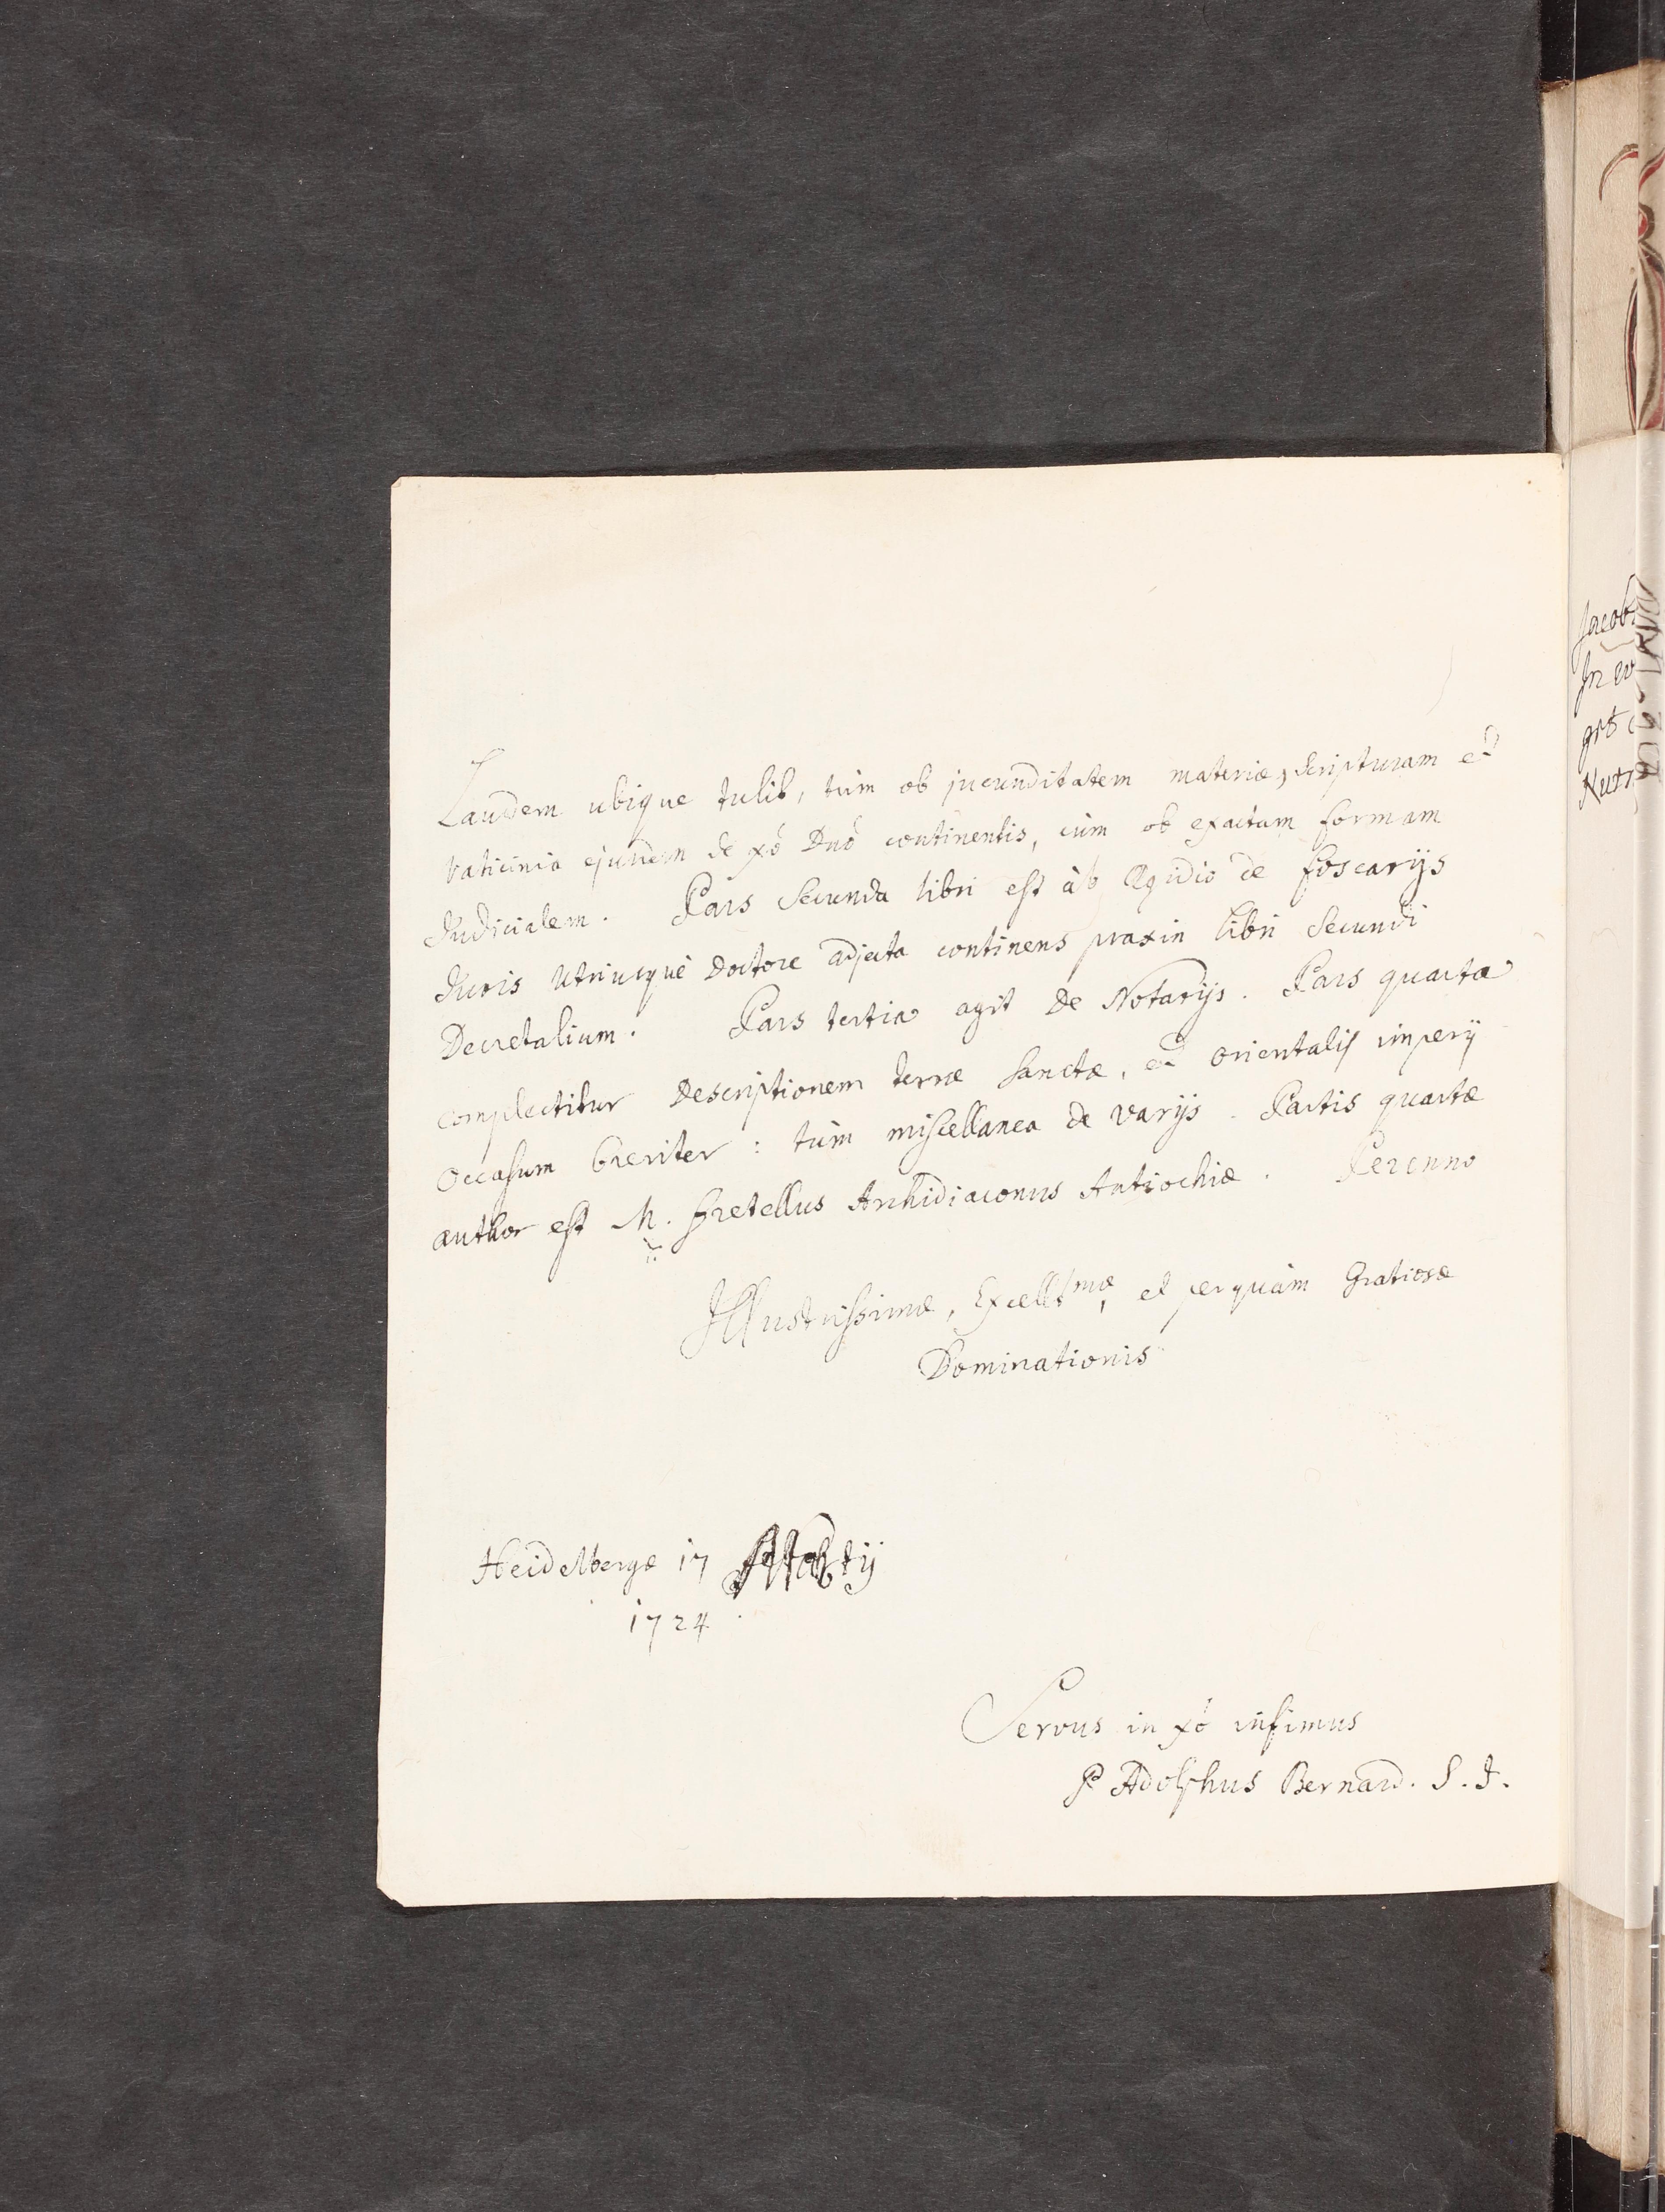 Laudem ubique tulit, tùm ob jucunditatem materiæ, scripturam et
vaticinia ejusdem de xõ Dnõ continentis, cùm ob exactam formam
Judicialem. Pars Secunda libri est àb Ægidio de foscarijs
Juris Utriusquè Doctore adjecta continens praxin libri Secundi
Decretalium. Pars tertia agit De Notarijs. Pars quarta
complectitur Descriptionem terræ Sanctæ, et orientalis imperij
Occasum breviter: tùm miscellanea de varijs. Partis quartæ
author est M. fretellus Archidiaconus Antiochiæ. Perenno
Illustrissimæ, Excellmæ, et perquàm Gratiosæ
Dominationis
Heidelbergæ 17 Martij
1724.
Servus in xõ infimus
P Adolphus Bernard. S. J.
Jacob
In
Nutr